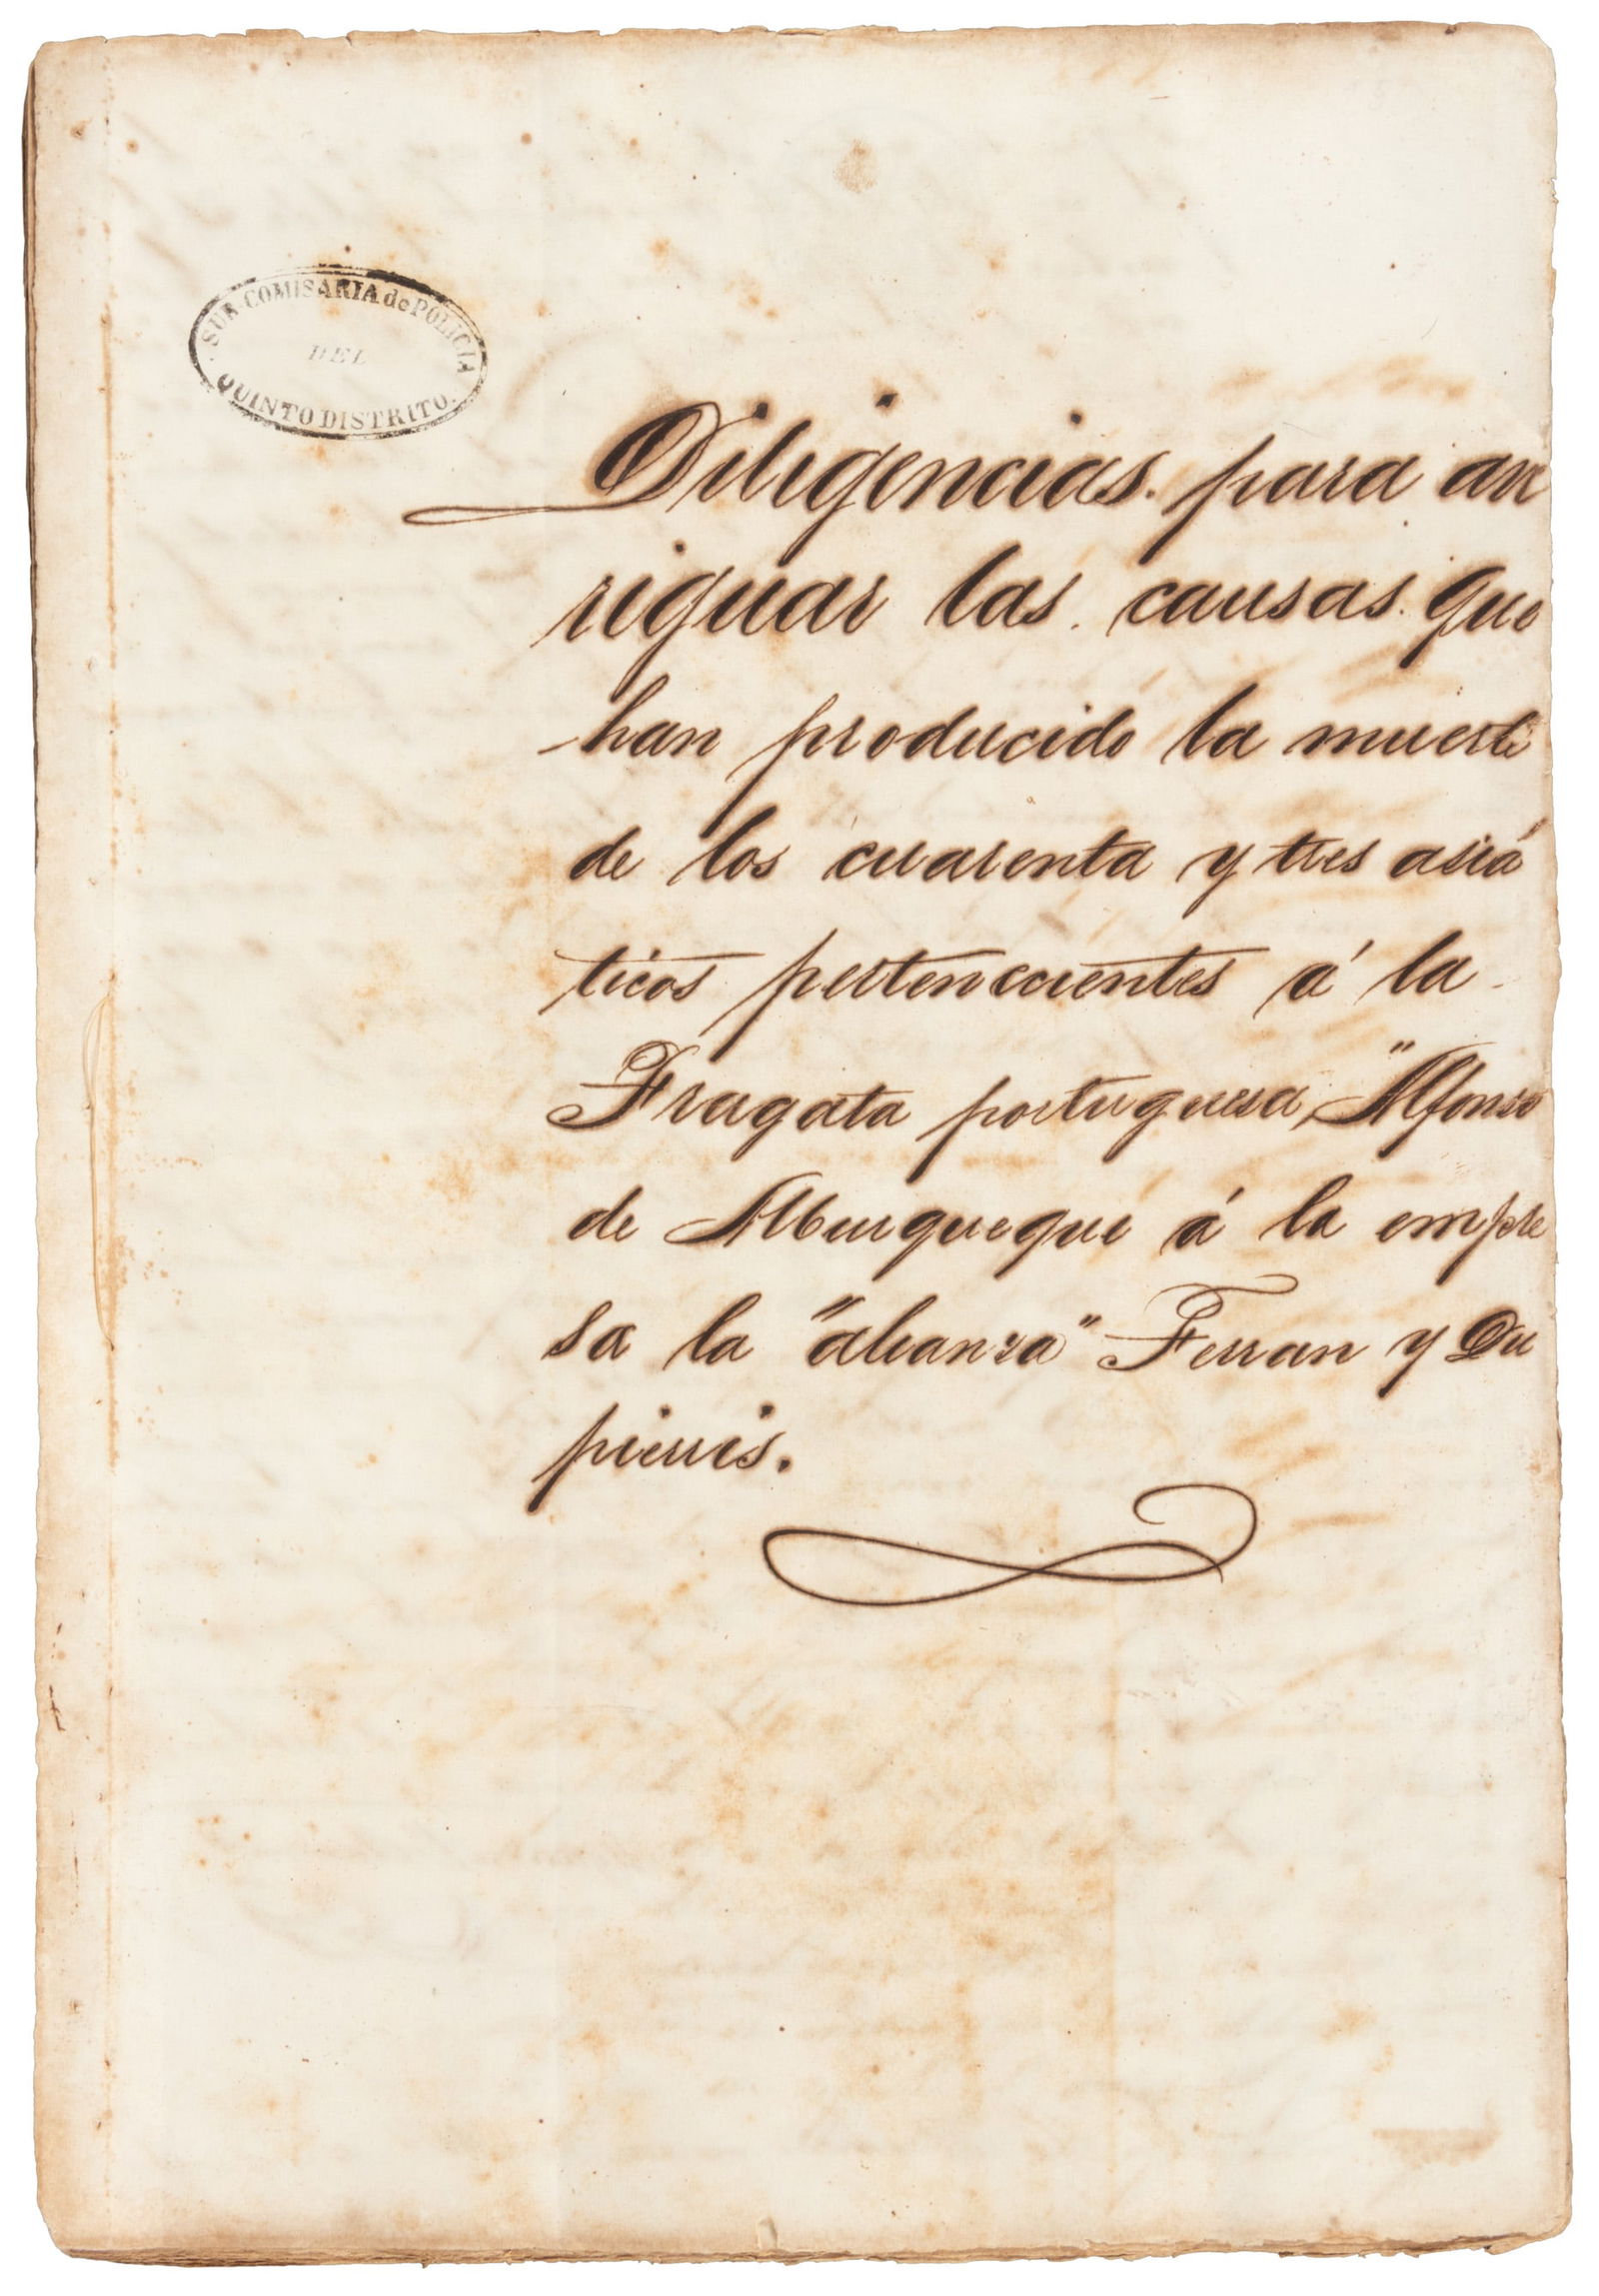 SUB-COMISARIA de POLICIA
DEL
QUINTO DISTRITO.
Diligencias para ave
riguar las causas que
han producido la muerte
de los cuarenta y tres asiá
ticos pertenecientes á la
Fragata portuguesa "Alfonso
de Alburqueque á la empre
sa la "alianza" Ferran y Du
pierris.